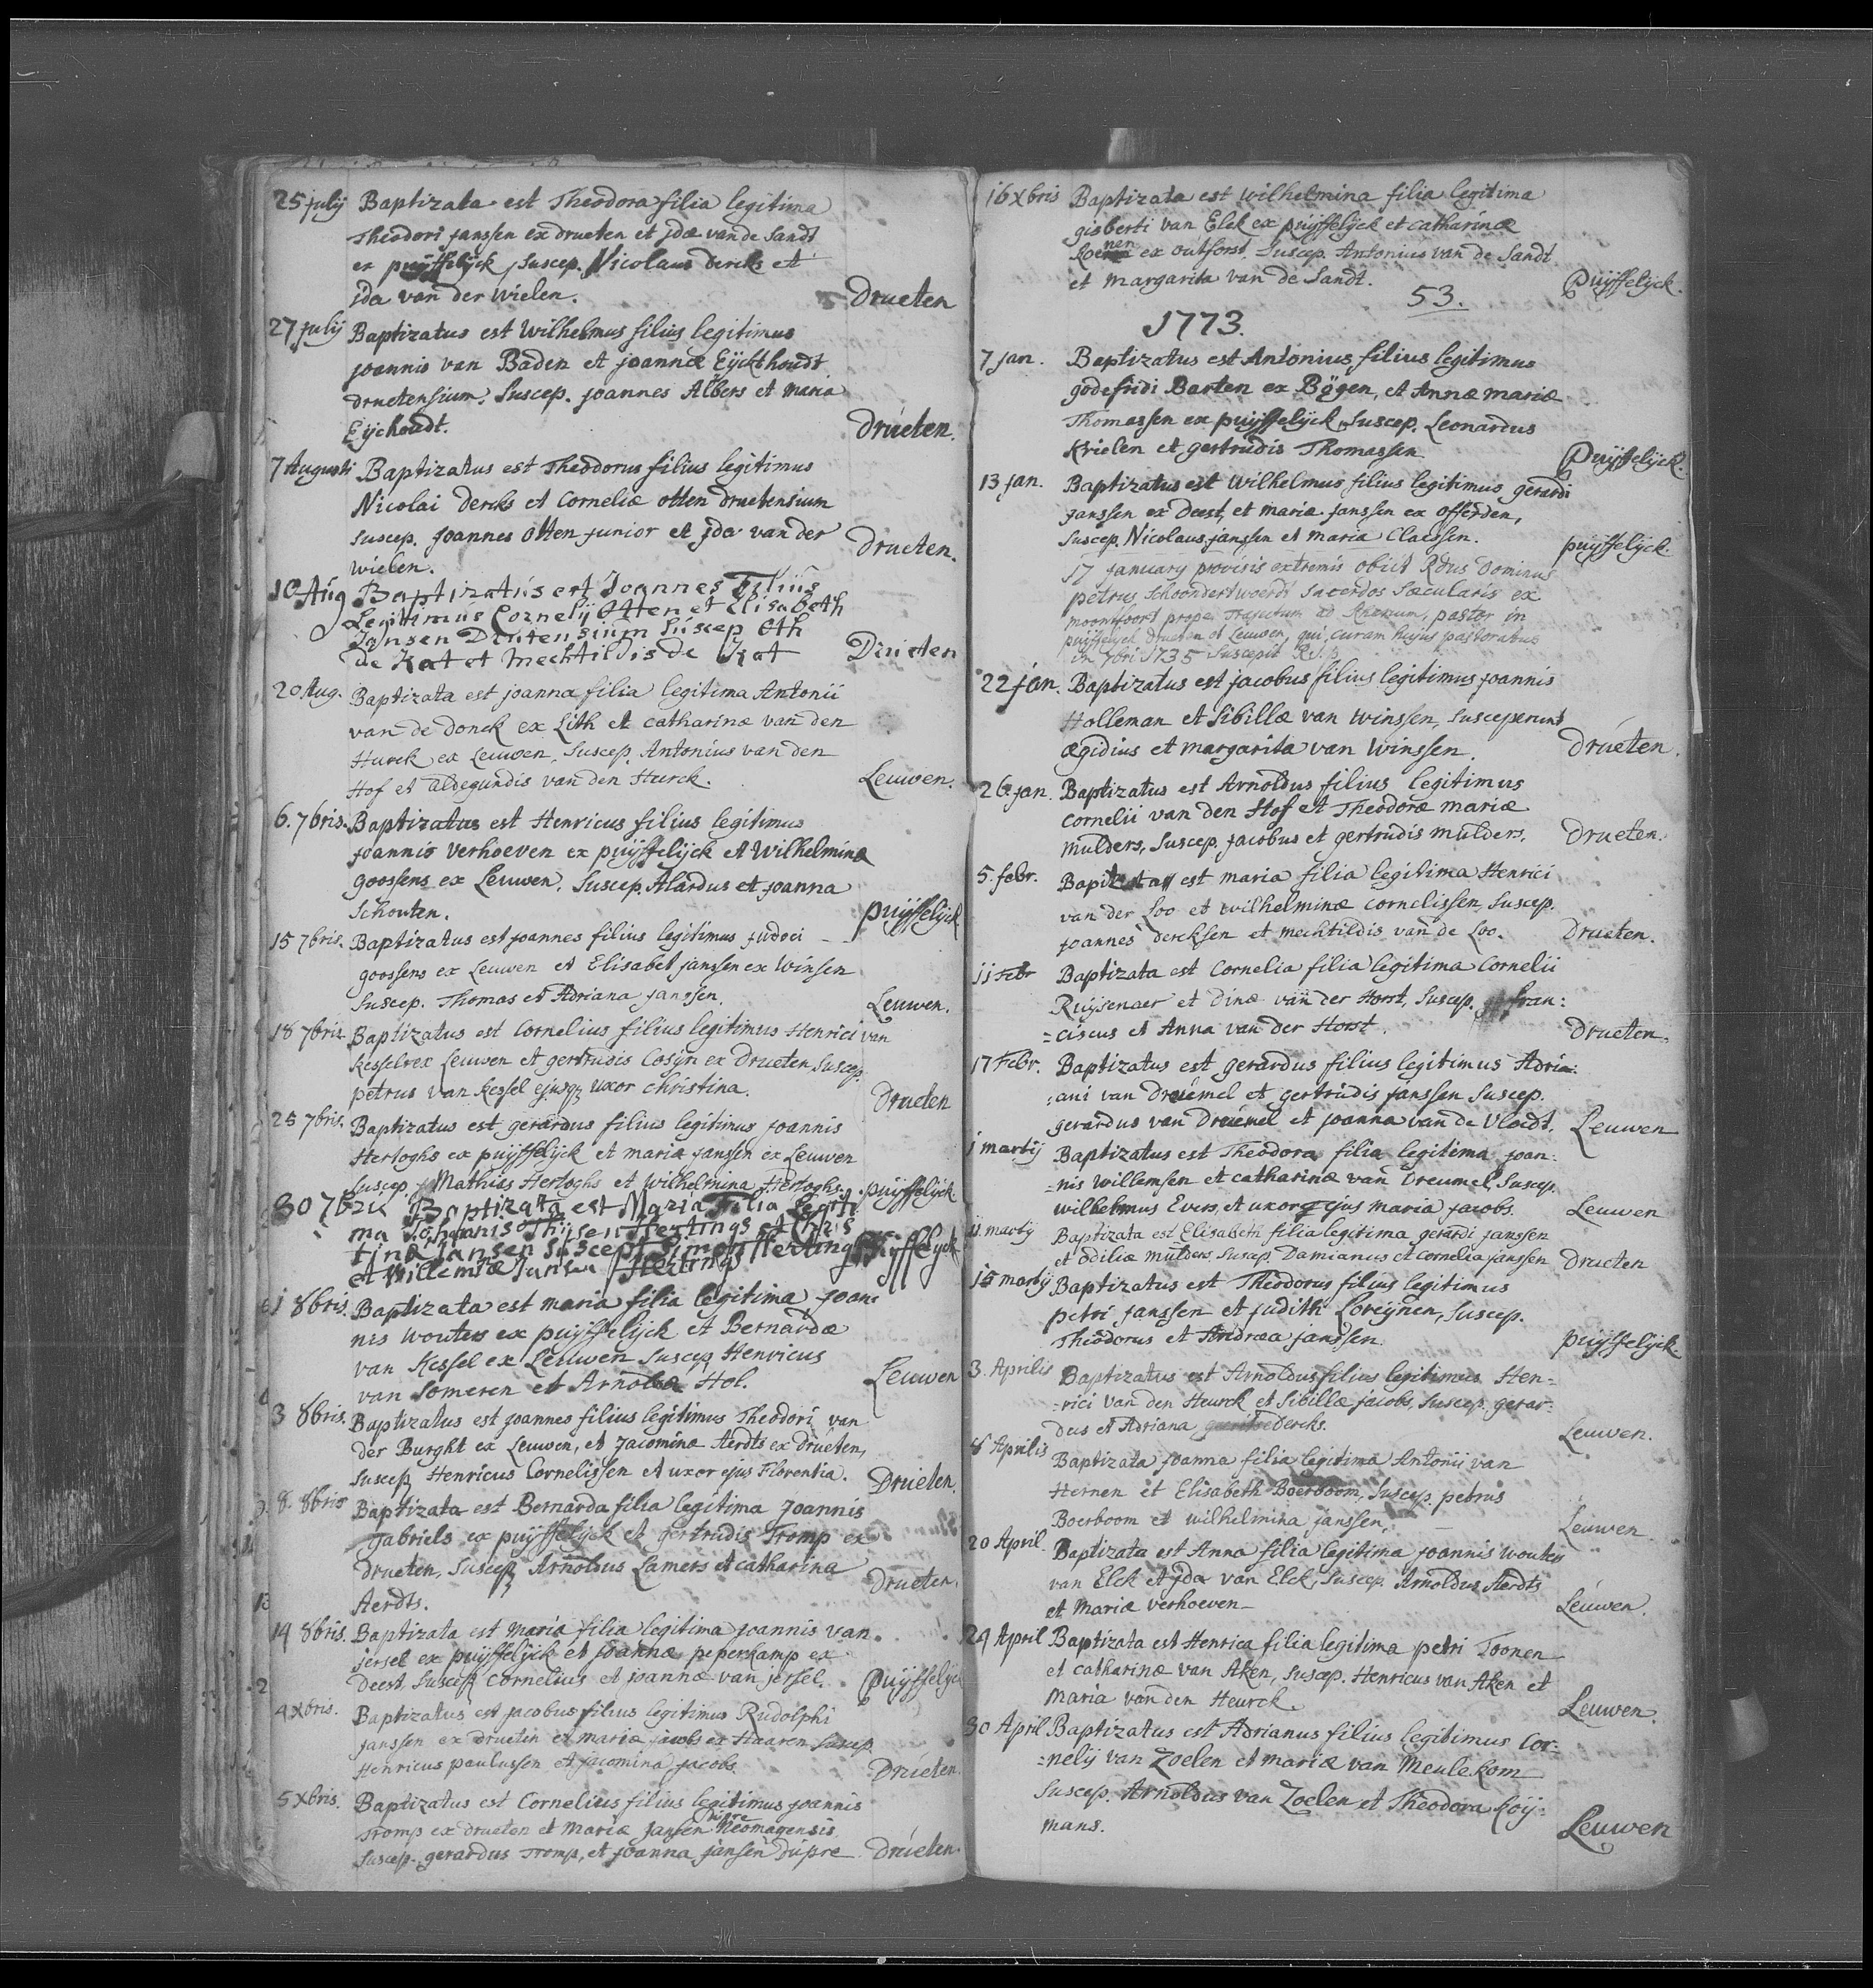 25 julij Baptizata est Theodora filia legitima
Theodori janssen ex drueten et jdæ van de Sandt
ex puijffelijck, Suscep. Nicolaus dercks et
jda van der wielen. Drueten
27 julij Baptizatus est Wilhelmus filius legitimus
joannis van Baden et joannæ Eijckthoudt
druetensium. Suscep. joannes Albers et maria
Eijchoudt. Drueten.
7 Augusti Baptizatus est Theodorus filius legitimus
Nicolai dercks et Corneliæ otten druetensium
Suscep. joannes Otten junior et jda van der
wielen. Drueten.
10 Aug Baptizatus est Joannes Filius
Legitimus Cornelij Otten et Elisabeth
Jansen Drutensium Suscep Oth
de Kat et Mechtildis de Kat Drueten
20 Aug. Baptizata est joanna filia legitima Antonii
van de donck ex Lith et catharinæ van den
Hurck ex Leuwen, Suscep. Antonius van den
Hof et aldegundis van den Hurck. Leuwen.
6. 7bris. Baptizatus est Henricus filius legitimus
joannis verhoeven ex puijffelijck et Wilhelminæ
goossens ex Leuwen. Suscep. Alardus et joanna
Schouten. puijffelijck
15 7bris. Baptizatus est joannes filius legitimus judoci
goossens ex Leuwen et Elisabet janssen ex Winsen
Suscep. Thomas et Adriana janssen. Leuwen.
18 7bris. Baptizatus est Cornelius filius legitimus Henrici van
kessel ex Leuwen et gertrudis Cosijn ex Drueten Suscep.
petrus van kessel ejusq; uxor christina. Drueten
25 7bris. Baptizatus est gerardus filius legitimus joannis
Hertoghs ex puijffelijck et mariæ janssen ex Leuwen
Suscep. Mathias Hertoghs et wilhelmina Hertoghs. puijffelijck.
30 7bris Baptizata est Maria Filia Legiti
ma Johannis Thijsen Hertings et Chris
tinæ jansen Suscept Simon Hertings Puijffelijck
et Willemtæ Jansen Hertings
1 8bris. Baptizata est maria filia legitima joan-
nis wouters ex puijffelijck et Bernardæ
van Kessel ex Leuwen Suscep. Henricus
van Someren et Arnolda Hol. Leuwen
3 8bris. Baptizatus est joannes filius legitimus Theodori van
der Burght ex Leuwen, et jacominæ Aerdts ex drueten,
Suscep. Henricus Cornelissen et uxor ejus Florentia. Drueten.
8. 8bris Baptizata est Bernarda filia legitima joannis
gabriels ex puijffelijck et gertrudis Tromp ex
Drueten, Suscep. Arnoldus Lamers et catharina
Aerdts. Drueten.
14 8bris. Baptizata est Maria filia legitima joannis van
jersel ex puijffelijck et joannæ peperkamp ex
Deest, Suscep. Cornelius et joanna van jersel. puijffelijck
4 xbris. Baptizatus est jacobus filius legitimus Rudolphi
janssen ex drueten et mariæ jacobs ex Haaren Suscep.
Henricus paulussen et jacomina jacobs. Drueten.
5 xbris. Baptizatus est Cornelius filius legitimus joannis
Tromp ex drueten et Mariæ Jansen Neomagensis
Suscep. gerardus Tromp, et joanna jansen dupre Drueten.
16 xbris Baptizata est wilhelmina filia legitima
gisberti van Elck ex puijffelijck et catharinæ
ex outforst. Suscep. Antonius van de Sandt
et margarita van de Sandt. Puijffelijck.
53.
1773.
7 jan. Baptizatus est Antonius filius legitimus
godefridi Barten ex Bögen, et Annæ mariæ
Thomassen ex puijffelijck, Suscep. Leonardus
Krielen et gertrudis Thomassen Puijffelijck.
13 jan. Baptizatus est Wilhelmus filius legitimus gerardi
janssen ex deest, et mariæ janssen ex offerden,
Suscep. Nicolaus janssen et maria Claessen. puijffelijck.
17 january provisis extremis obiit Rdus Dominus
petrus Schoondertwoerdt Sacerdos Sæcularis ex
moontfoort prope Trajectum ad Rhenum, pastor in
puijffelijck drueten et Leuwen, qui curam hujus pastoratus
in 7bri 1735 Suscepit R.I.p.
22 jan. Baptizatus est jacobus filius legitimus joannis
Holleman et Sibillæ van winssen, Susceperunt
ægidius et margarita van Winssen. Drueten.
26 jan. Baptizatus est Arnoldus filius legitimus
cornelii van den Hof et Theodoræ mariæ
mulders, Suscep. jacobus et gertrudis mulders. Drueten.
5. febr. est maria filia legitima Henrici
van der Loo et wilhelminæ cornelissen, Suscep.
joannes dercksen et mechtildis van de Loo. Drueten.
11 Febr Baptizata est Cornelia filia legitima Cornelii
Ruijsenaer et dinæ van der Horst, Suscep. fran:
=ciscus et Anna van der Horst. Drueten.
17 Febr. Baptizatus est gerardus filius legitimus Adri:
:ani van Dreumel et gertrudis janssen Suscep.
gerardus van Dreumel et joanna van de Vloedt. Leuwen
1 martij Baptizatus est Theodora filia legitima joan:
=nis willemsen et catharinæ van Dreumel, Suscep.
wilhelmus Evers, et uxor ejus maria jacobs. Leuwen
11 martij Baptizata est Elisabeth filia legitima gerardi janssen
et odiliæ mulders, Suscep. Damianus et cornelia janssen Drueten
15 martij Baptizatus est Theodorus filius legitimus
petri janssen et judith Loreijnen, Suscep.
Theodorus et Andræa janssen. puijffelijck.
3. Aprilis Baptizatus est Arnoldus filius legitimus Hen=
=rici van den Heurck et Sibillæ jacobs, Suscep. gerar=
dus et Adriana Dercks. Leuwen.
8 Aprilis Baptizata joanna filia legitima Antonii van
Hernen et Elisabeth Boerboom, Suscep. petrus
Boerboom et wilhelmina janssen. Leuwen
20 April Baptizata est Anna filia legitima joannis wouters
van Elck et jda van Elck, Suscep. Arnoldus Aerdts
et Maria verhoeven Leuwen.
29 April Baptizata est Henrica filia legitima petri Toonen
et catharinæ van Aken, Suscep. Henricus van Aken et
Maria van den Heurck. Leuwen.
30 April Baptizatus est Adrianus filius legitimus Cor:
=nelij van Zoelen et mariæ van Meulekom
Suscep. Arnoldus van Zoelen et Theodora koij=
mans. Leuwen